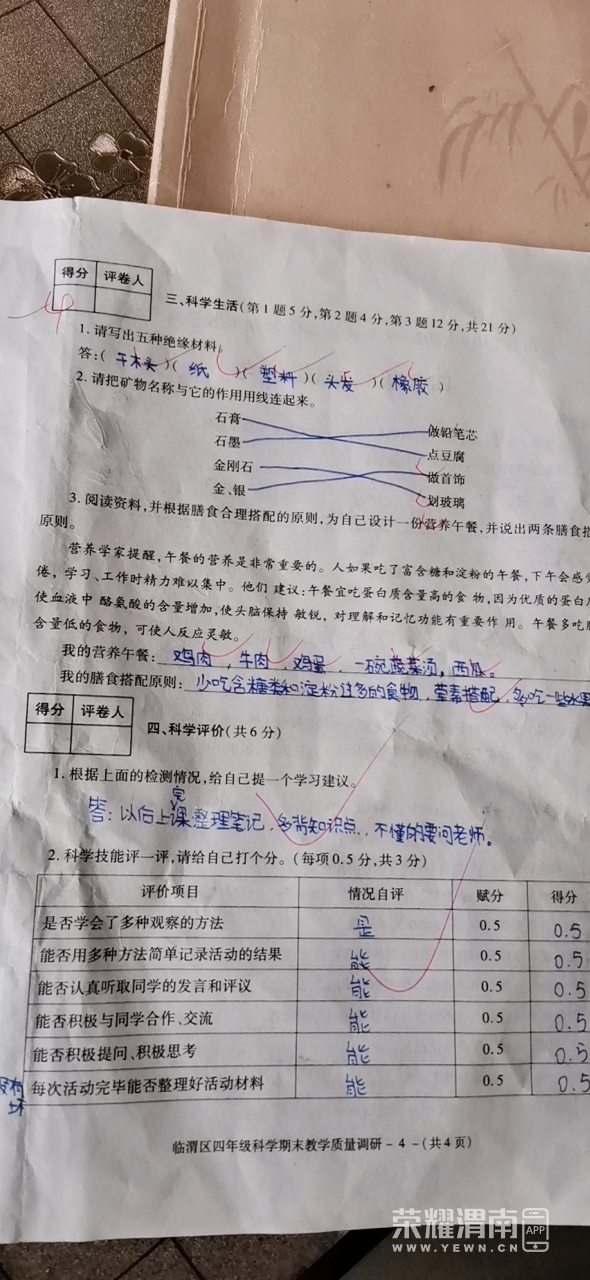 得分 评卷人
三、科学生活(第1题5分,第2题4分,第3题12分,共21分)
1.请写出五种绝缘材料。
答:(干木头)(纸)(塑料)(头发)(橡胶)
2.请把矿物名称与它的作用用线连起来。
石膏 做铅笔芯
石墨 点豆腐
金刚石 做首饰
金、银 划玻璃
3.阅读资料,并根据膳食合理搭配的原则,为自己设计一份营养午餐,并说出两条膳食搭
原则。
营养学家提醒,午餐的营养是非常重要的。人如果吃了富含糖和淀粉的午餐,下午会感觉
倦,学习、工作时精力难以集中。他们 建议:午餐宜吃蛋白质含量高的食 物,因为优质的蛋白质
使血液中 酪氨酸的含量增加,使头脑保持 敏锐, 对理解和记忆功能有重要作 用。午餐多吃脂
含量低的食物,可使人反应灵敏。
我的营养午餐: 鸡肉,牛肉,鸡蛋,一碗蔬菜汤,西瓜。
我的膳食搭配原则: 少吃含糖类和淀粉过多的食物,荤素搭配,多吃一些水果
得分 评卷人
四、科学评价(共6分)
1.根据上面的检测情况,给自己提一个学习建议。
答:以后上完课整理笔记,多背知识点,不懂的要问老师。
2.科学技能评一评,请给自己打个分。(每项0.5分,共3分)
评价项目 情况自评 赋分 得分
是否学会了多种观察的方法 是 0.5 0.5
能否用多种方法简单记录活动的结果 能 0.5 0.5
能否认真听取同学的发言和评议 能 0.5 0.5
能否积极与同学合作、交流 能 0.5 0.5
能否积极提问、积极思考 能 0.5 0.5
每次活动完毕能否整理好活动材料 能 0.5 0.5
临渭区四年级科学期末教学质量调研-4-(共4页)
荣耀渭南 APP
WWW.YEWN.CN